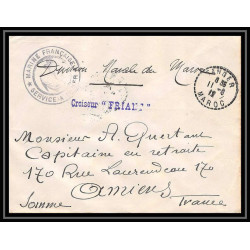 MARINE FRANÇAISE
SERVICE À LA MER
Division Navale du Maroc
TANGER
11-9
MAROC
Croiseur "FRIANT"
Monsieur A Quertant
Capitaine en retraite
170 Rue Laurendeau 170
Amiens
Somme France